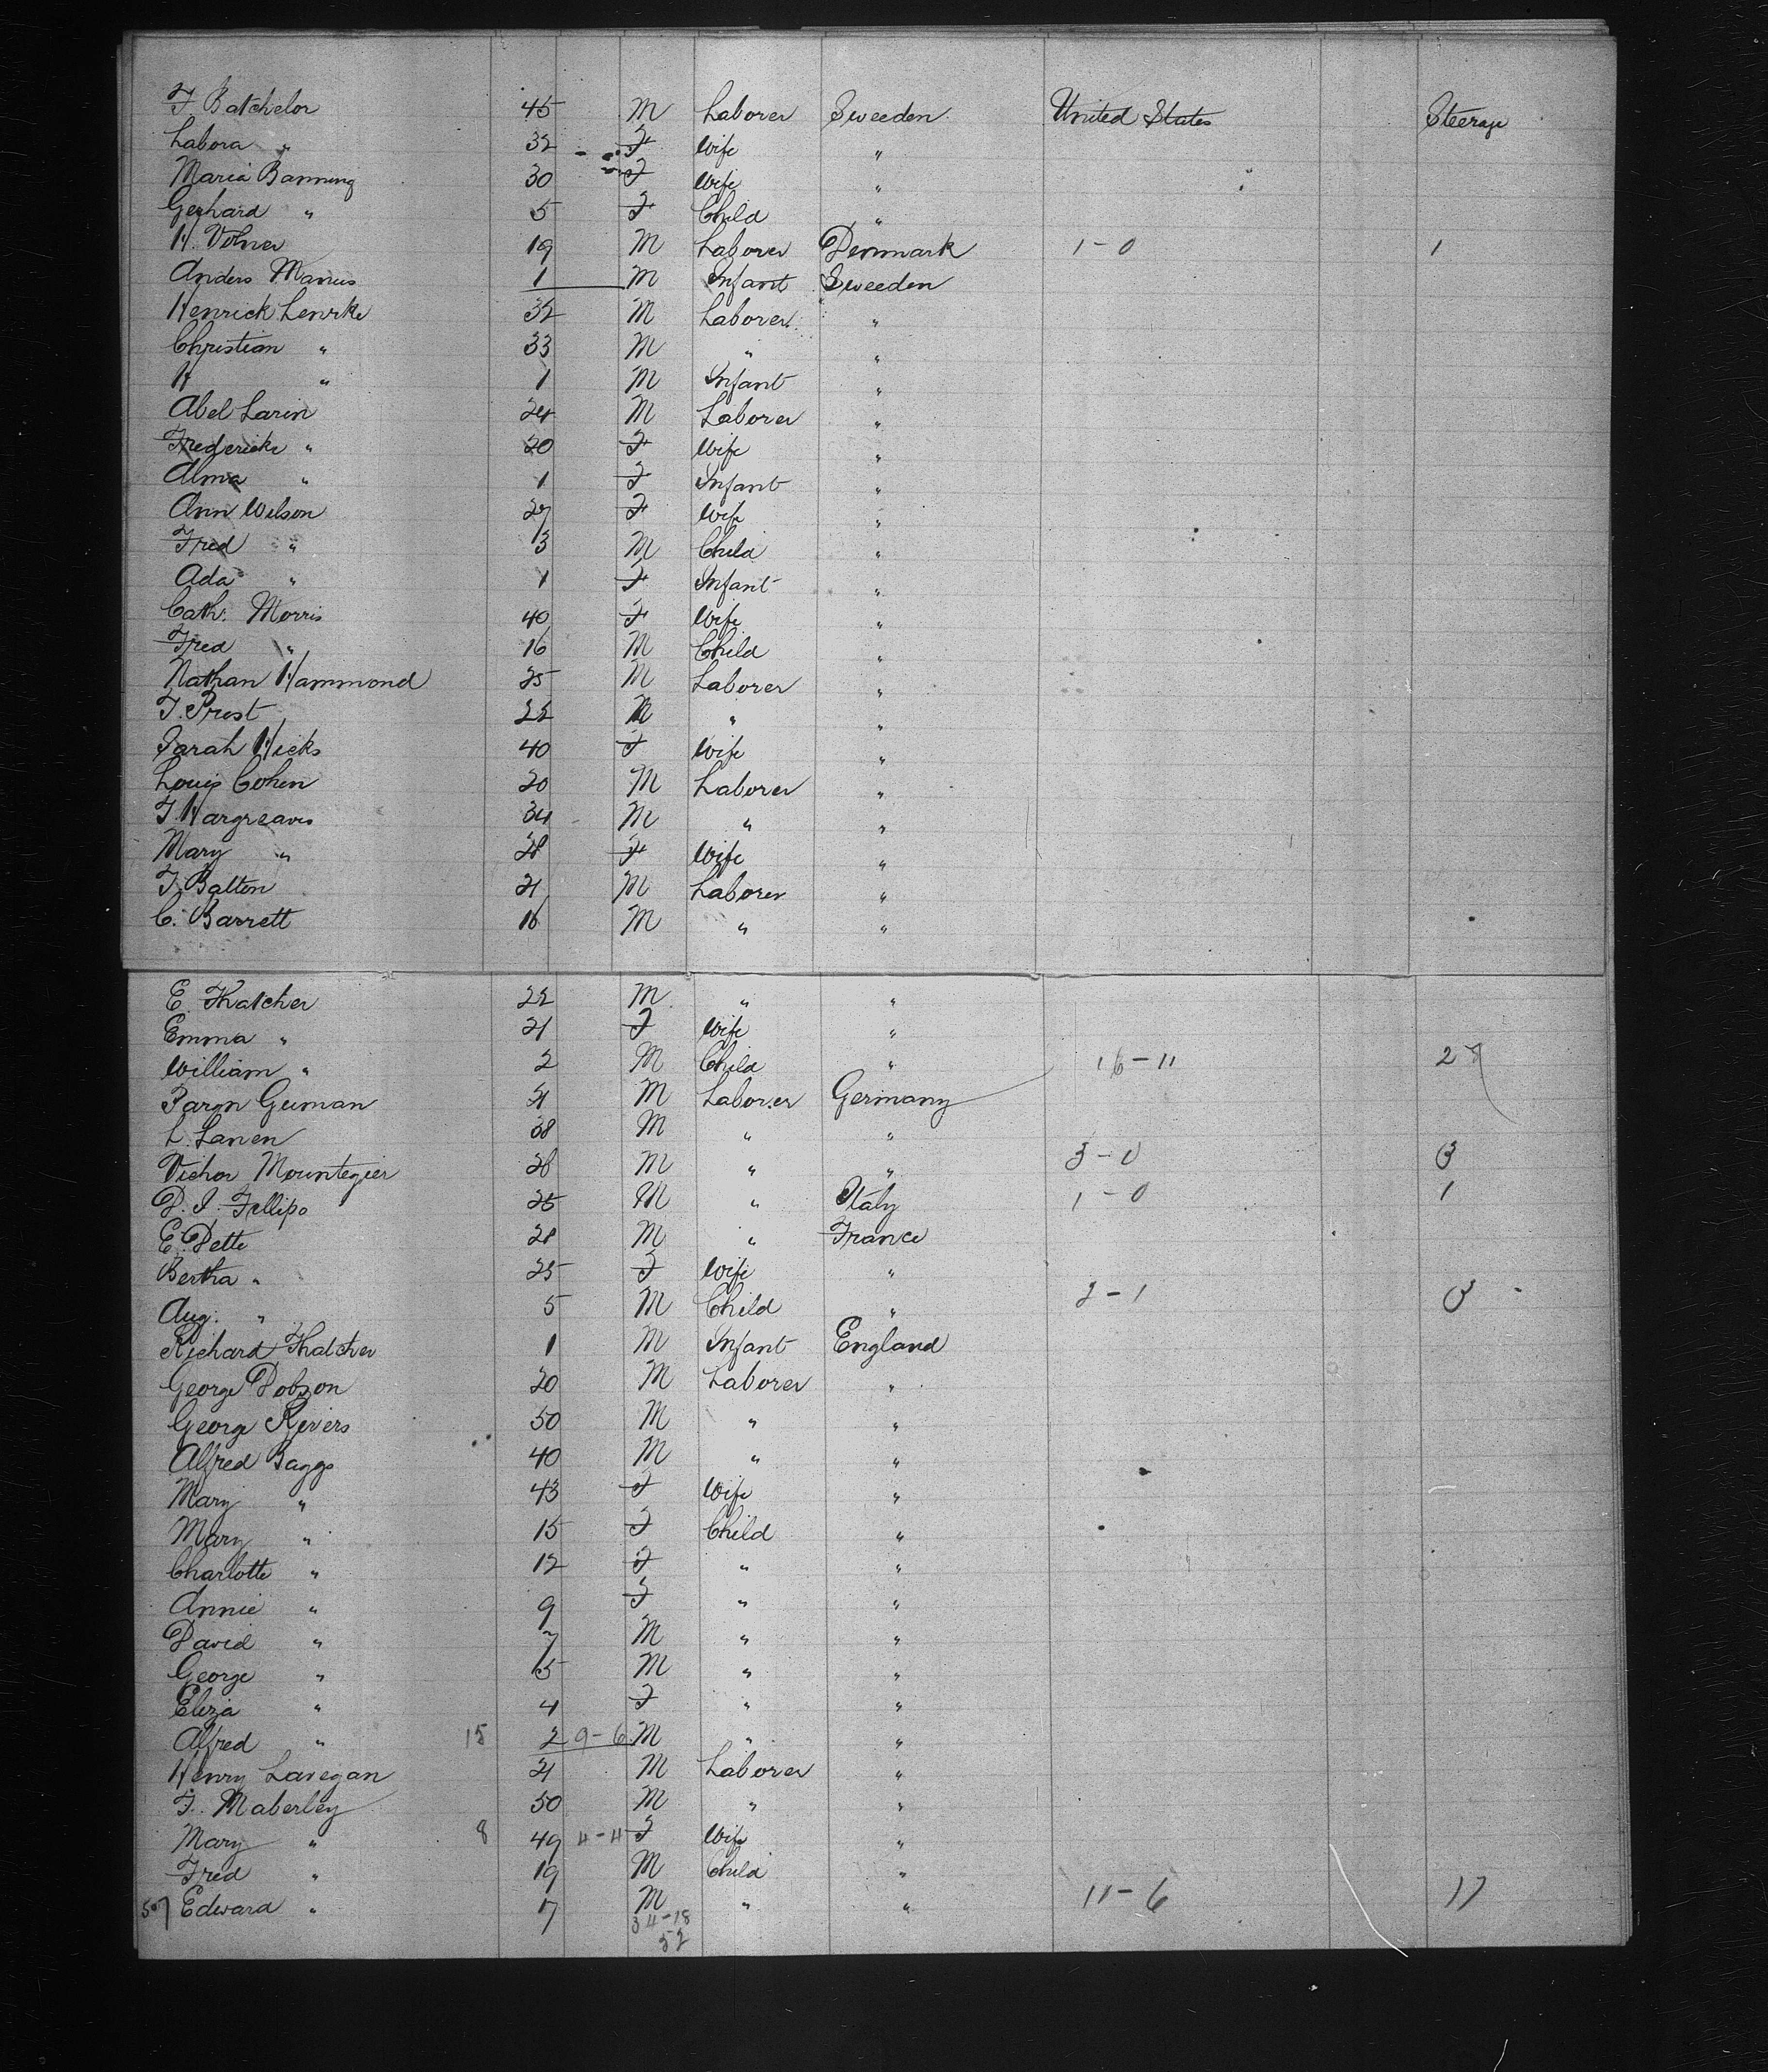 F Batchelor 45 M Laborer Sweeden United States Steerage
Labora " 32 F Wife "
Maria Banning 30 F Wife "
Gerhard " 5 F Child "
H. Volner 19 M Laborer Denmark 1-0 1
Anders Manus 1 M Infant Sweeden
Henrick Lenrke 32 M Laborer "
Christian " 33 M " "
H " 1 M Infant "
Abel Larin 24 M Laborer "
Fredericke " 20 F Wife "
Alma " 1 F Infant "
Ann Wilson 27 F Wife "
Fred " 3 M Child "
Ada " 1 F Infant "
Cath. Morris 40 F Wife "
Fred " 16 M Child "
Nathan Hammond 25 M Laborer "
F. Prost 22 M " "
Sarah Hicks 40 F Wife "
Louis Cohen 20 M Laborer "
F. Hargreaves 34 M " "
Mary " 28 F Wife "
F. Balten 21 M Laborer "
C. Barrett 16 M " "
E. Thatcher 22 M " "
Emma " 21 F Wife "
William " 2 M Child " 16-11 27
Geuman 21 M Laborer Germany
L. Lanen 38 M " "
Victor Mountegier 26 M " " 3-0 3
D. I. Fellipo 26 M " Italy 1-0 1
E. Dette 28 M " France
Bertha " 25 F Wife "
Aug. " 5 M Child " 2-1 3
Richard Thatcher 1 M Infant England
George Dobson 20 M Laborer "
George Revers 50 M " "
Alfred Baggs 40 M " "
Mary " 43 F Wife "
Mary " 15 F Child "
Charlotte " 12 F " "
Annie " 9 F " "
David " 7 M " "
George " 5 M " "
Eliza " 4 F " "
Alfred " 15 2 9-6 M " "
Henry Lavegan 21 M Laborer "
F. Maberley 50 M " "
Mary " 8 49 4-4 F Wife "
Fred " 19 M Child "
507 Edward " 17 M " " 11-6 17
34-18
52